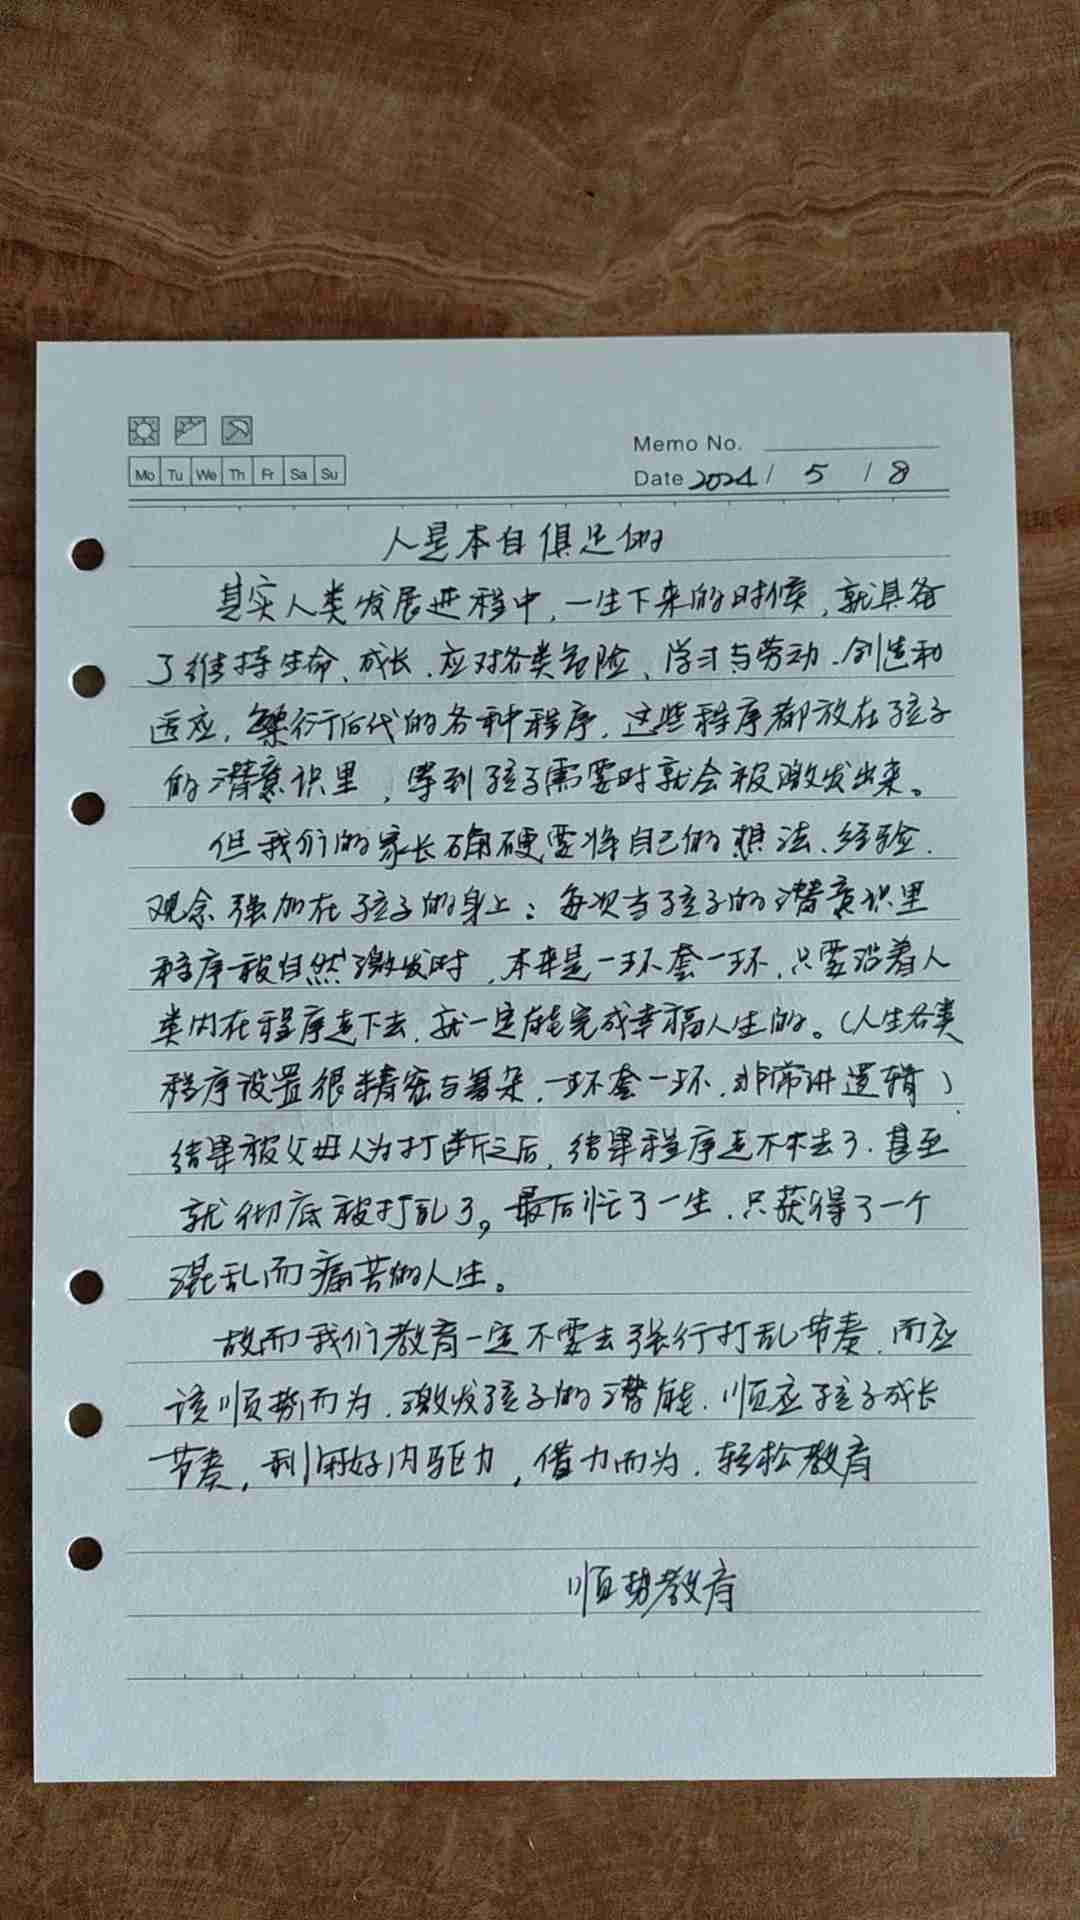 Memo No.
Mo Tu We Th Fr Sa Su
Date 2024 / 5 / 8
人是本自俱足的
其实人类发展进程中,一生下来的时候,就具备
了维持生命、成长、应对各类危险、学习与劳动、创造和
适应,繁衍后代的各种程序,这些程序都放在孩子
的潜意识里,等到孩子需要时就会被激发出来。
但我们的家长确硬要将自己的想法、经验、
观念强加在孩子的身上;每次当孩子的潜意识里
程序被自然激发时,本来是一环套一环,只要沿着人
类内在程序走下去,就一定能完成幸福人生的。(人生各类
程序设置很精密与复杂,一环套一环,非常讲逻辑)
结果被父母人为打断之后,结果程序走不下去了,甚至
就彻底被打乱了,最后忙了一生,只获得了一个
混乱而痛苦的人生。
故而我们教育一定不要去强行打乱节奏,而应
该顺势而为,激发孩子的潜能,顺应孩子成长
节奏,利用好内驱力,借力而为,轻松教育
顺势教育